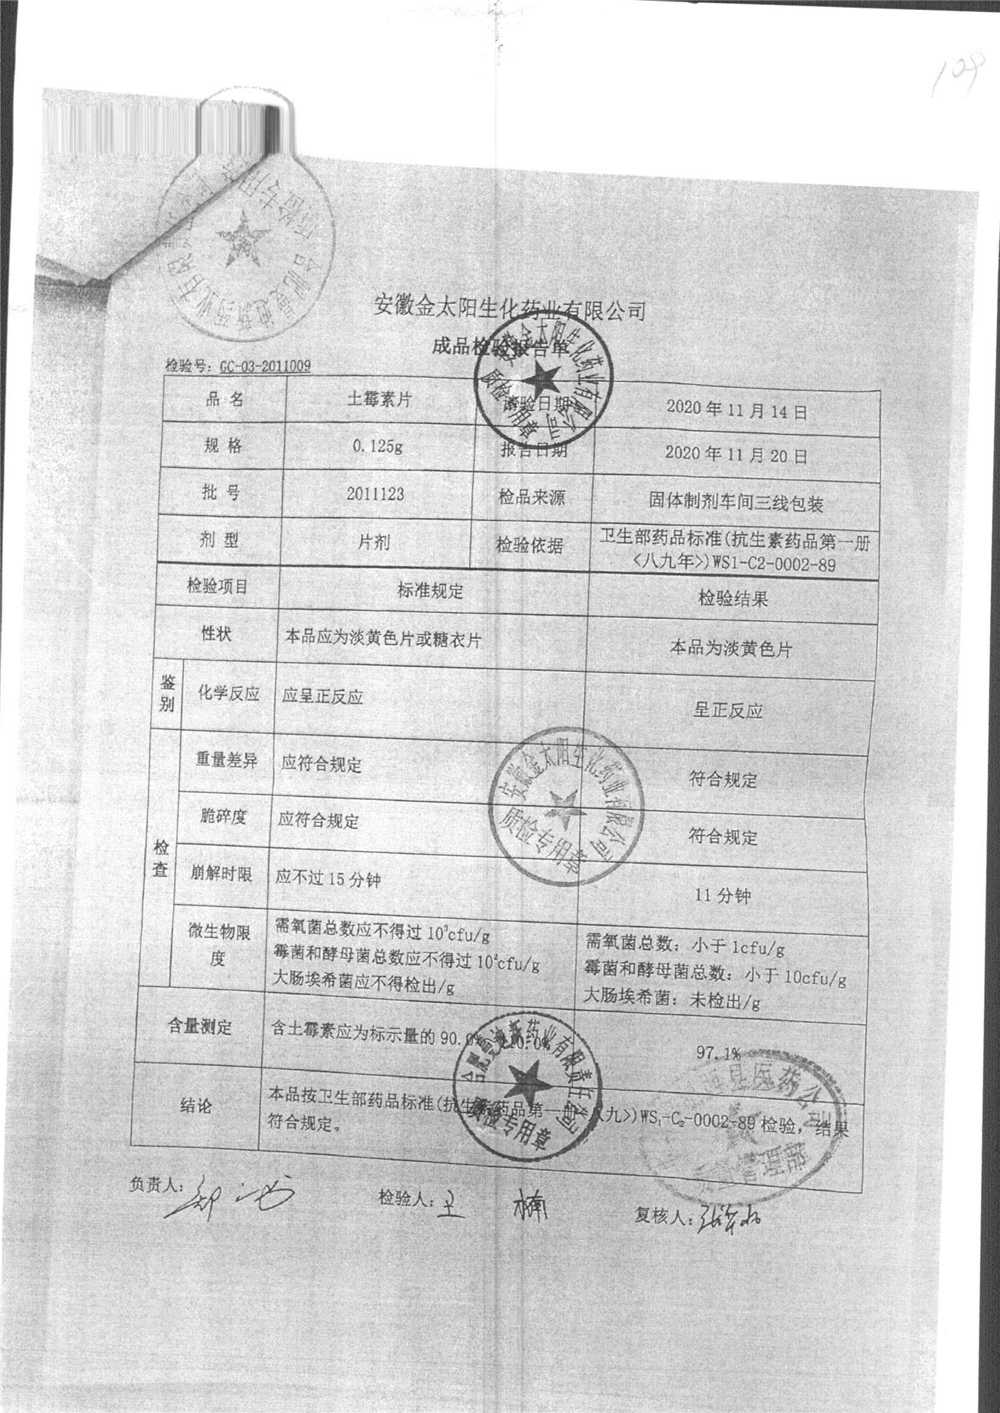 109
安徽金太阳生化药业有限公司
成品检验报告单
检验号: GC-03-2011009
品 名 土霉素片 检验日期 2020年11月14日
规 格 0.125g 报告日期 2020年11月20日
批 号 2011123 检品来源 固体制剂车间三线包装
剂 型 片剂 检验依据 卫生部药品标准(抗生素药品第一册
<八九年>)WS1-C2-0002-89
检验项目 标准规定 检验结果
性状 本品应为淡黄色片或糖衣片 本品为淡黄色片
鉴别 化学反应 应呈正反应 呈正反应
检查 重量差异 应符合规定 符合规定
脆碎度 应符合规定 符合规定
崩解时限 应不过15分钟 11分钟
微生物限度 需氧菌总数应不得过10³cfu/g 需氧菌总数: 小于1cfu/g
霉菌和酵母菌总数应不得过10²cfu/g 霉菌和酵母菌总数: 小于10cfu/g
大肠埃希菌应不得检出/g 大肠埃希菌: 未检出/g
含量测定 含土霉素应为标示量的90.0% 97.1%
结论 本品按卫生部药品标准(抗生素药品第一册<八九>)WS₁-C₂-0002-89检验, 结果
符合规定。
负责人: 检验人: 王 楠 复核人:
安徽金太阳生化药业有限公司
质检专用章
安徽金太阳生化药业有限公司
质检专用章
质检专用章
医药公司
管理部